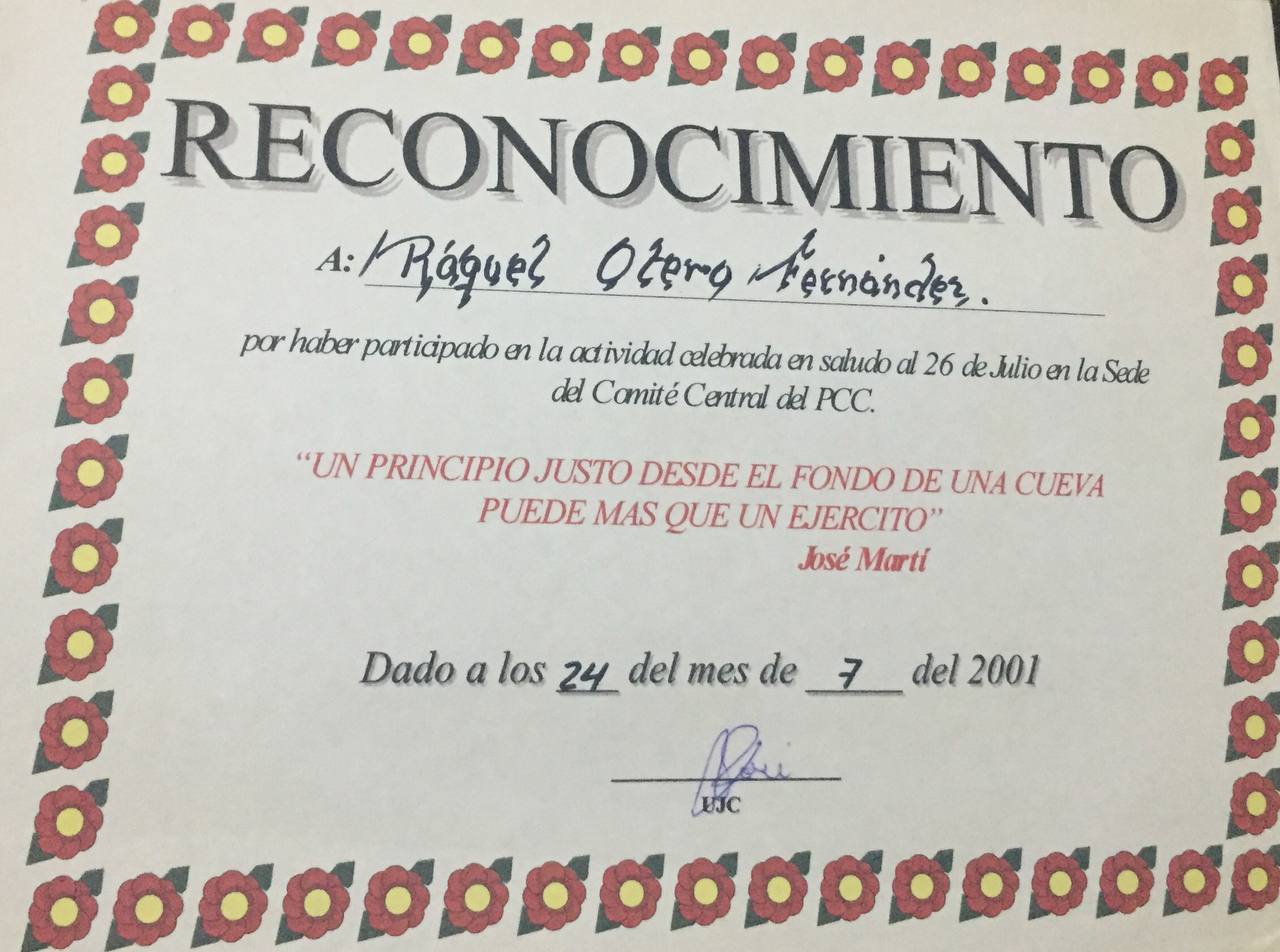 RECONOCIMIENTO
A: Ráquel Otero Fernández.
por haber participado en la actividad celebrada en saludo al 26 de Julio en la Sede
del Comité Central del PCC.
“UN PRINCIPIO JUSTO DESDE EL FONDO DE UNA CUEVA
PUEDE MAS QUE UN EJERCITO”
José Martí
Dado a los 24 del mes de 7 del 2001
UJC